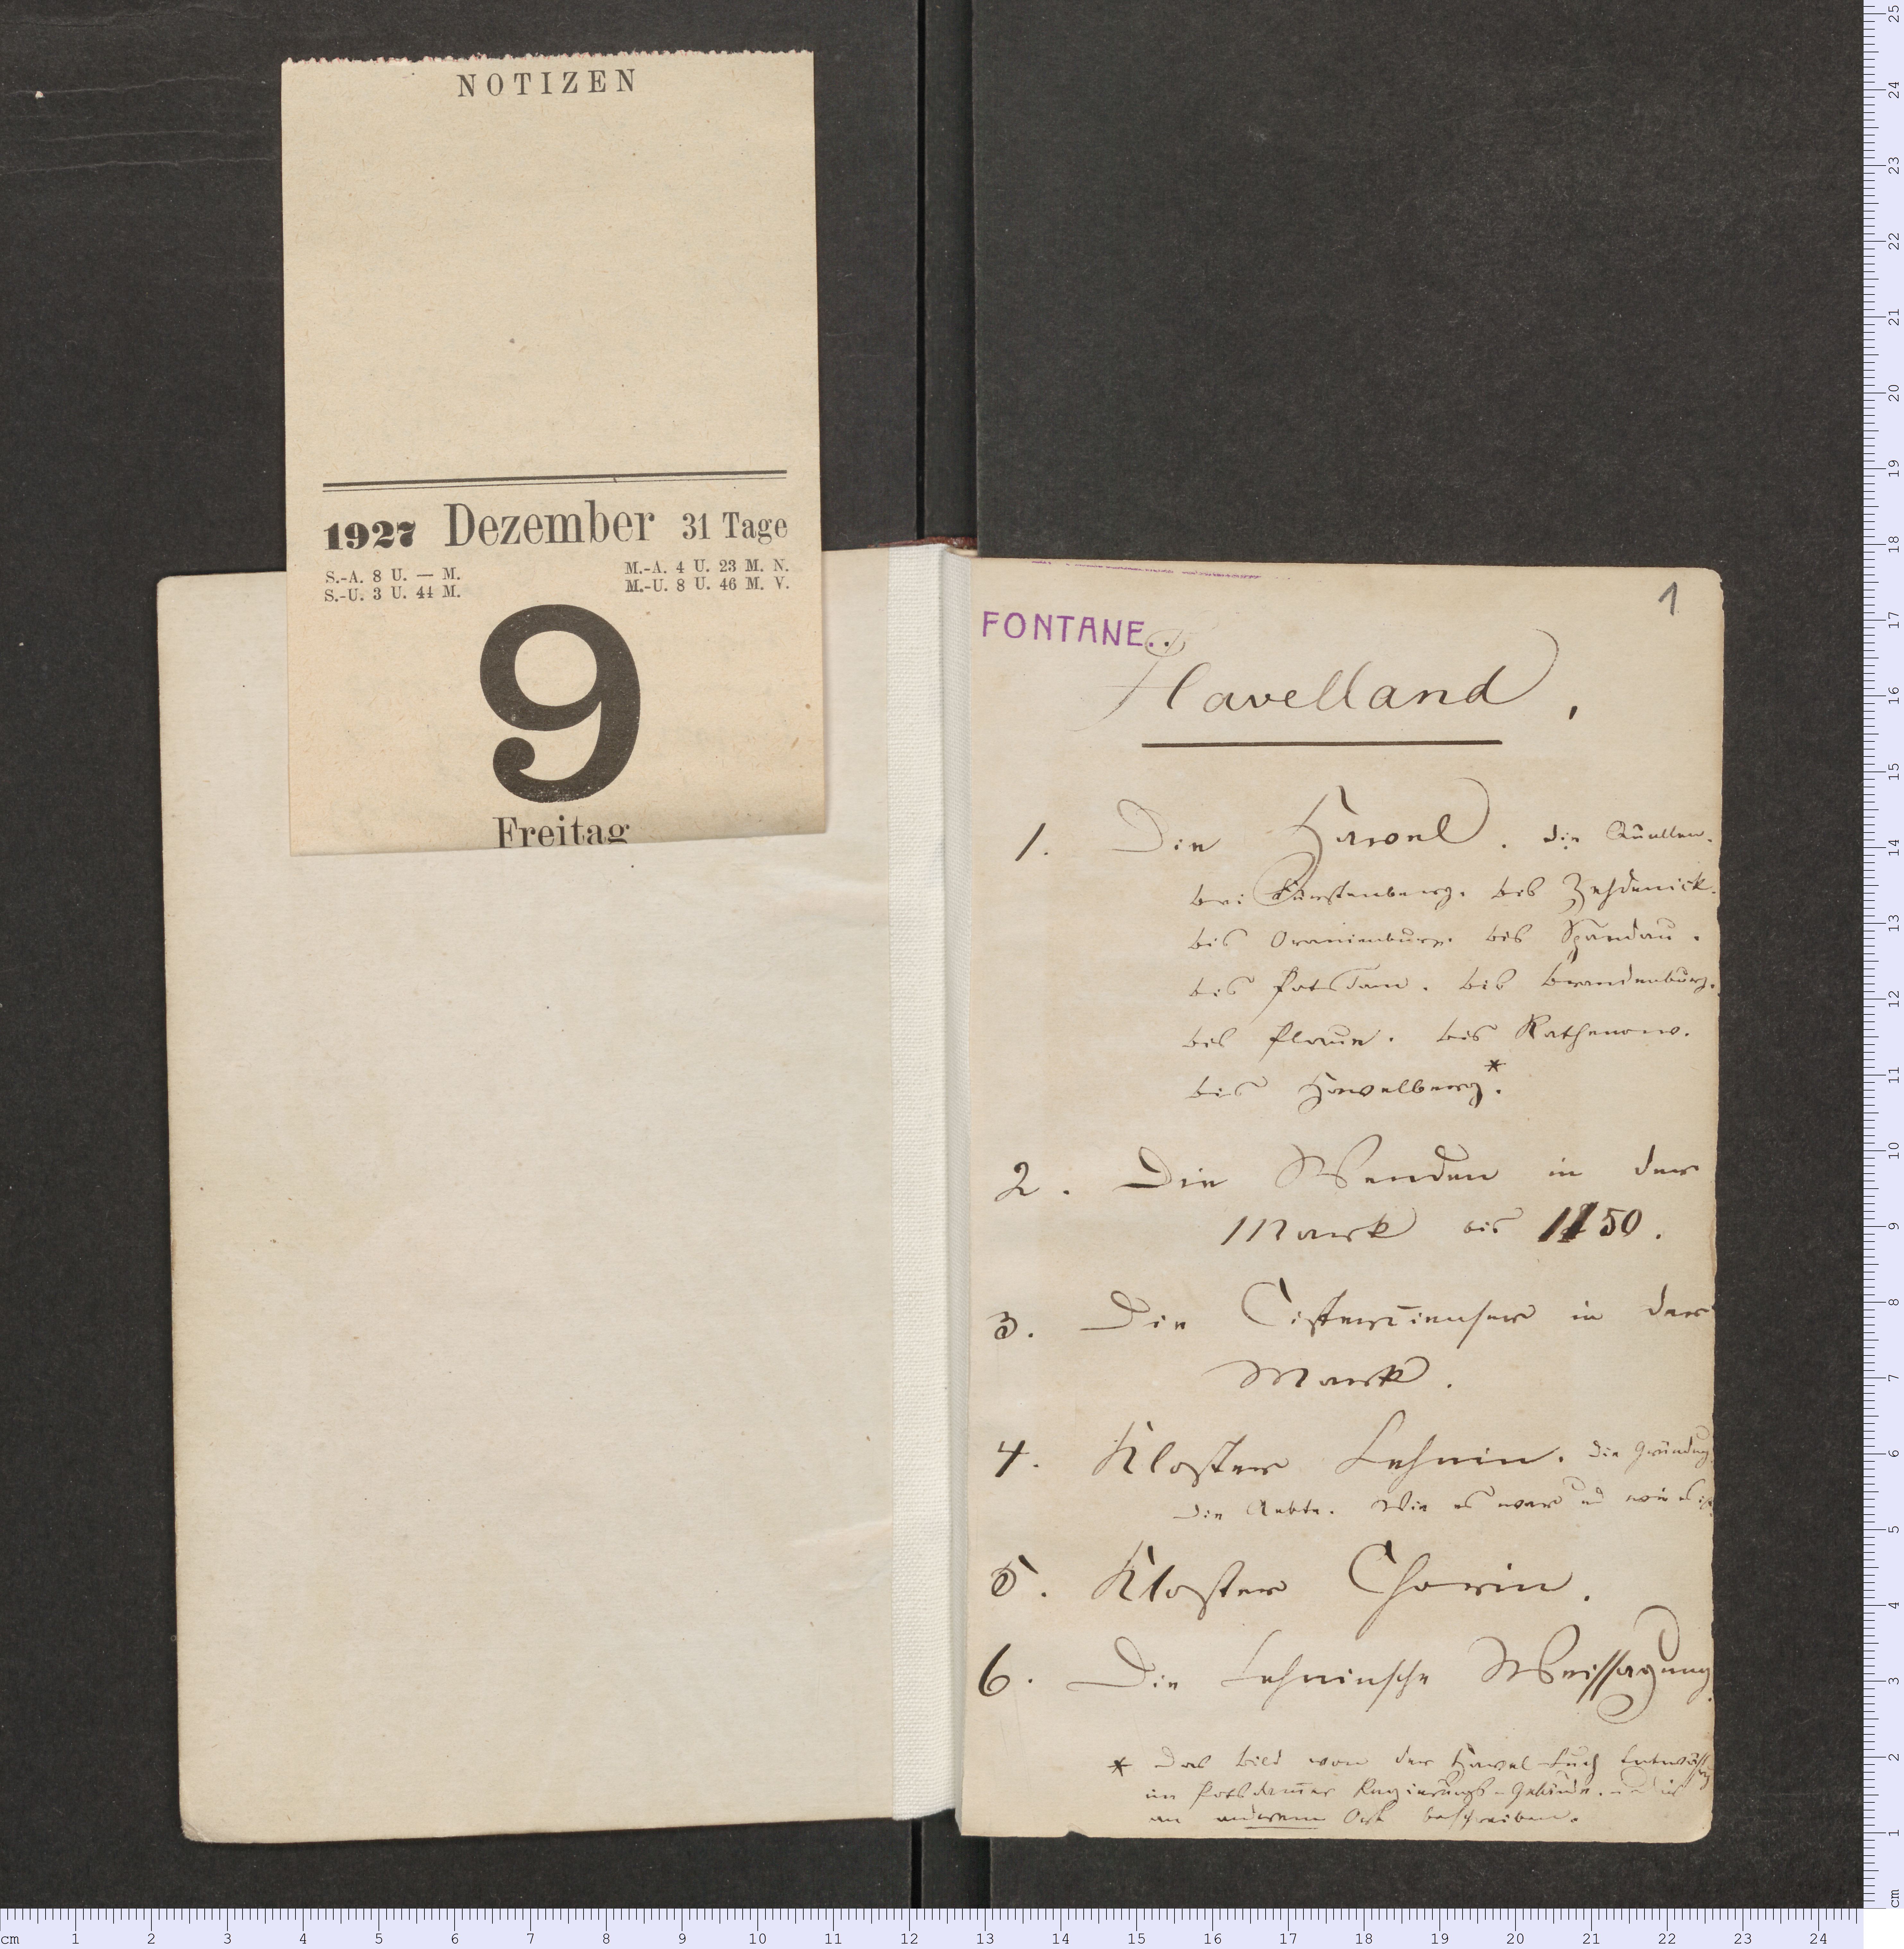 NOTIZEN
1927 Dezember 31 Tage
S.-A. 8 U. — M. M.-A. 4 U. 23 M. N.
S.-U. 3 U. 44 M. M.-U. 8 U. 46 M. V.
9
Freitag
1
FONTANE..
Havelland,
1. Die Havel. die Quellen.
bei Fürstenberg. bis Zehdenick.
bis Oranienburg. bis Spandau.
bis Potsdam. bis Brandenburg.
bis Plaue. bis Rathenow.
bis Havelberg*.
2. Die Wenden in der
Mark bis 1150.
3. Die Cistercienser in der
Mark.
4. Kloster Lehnin. Die Gründung.
Die Aebte. Wie es war und wie es ist.
5. Kloster Chorin.
6. Die Lehninsche Weissagung.
* Das Bild von der Havel-Luch Entwässrg
im Potsdamer Regierungs-Gebäude.
an anderem Ort beschreiben.